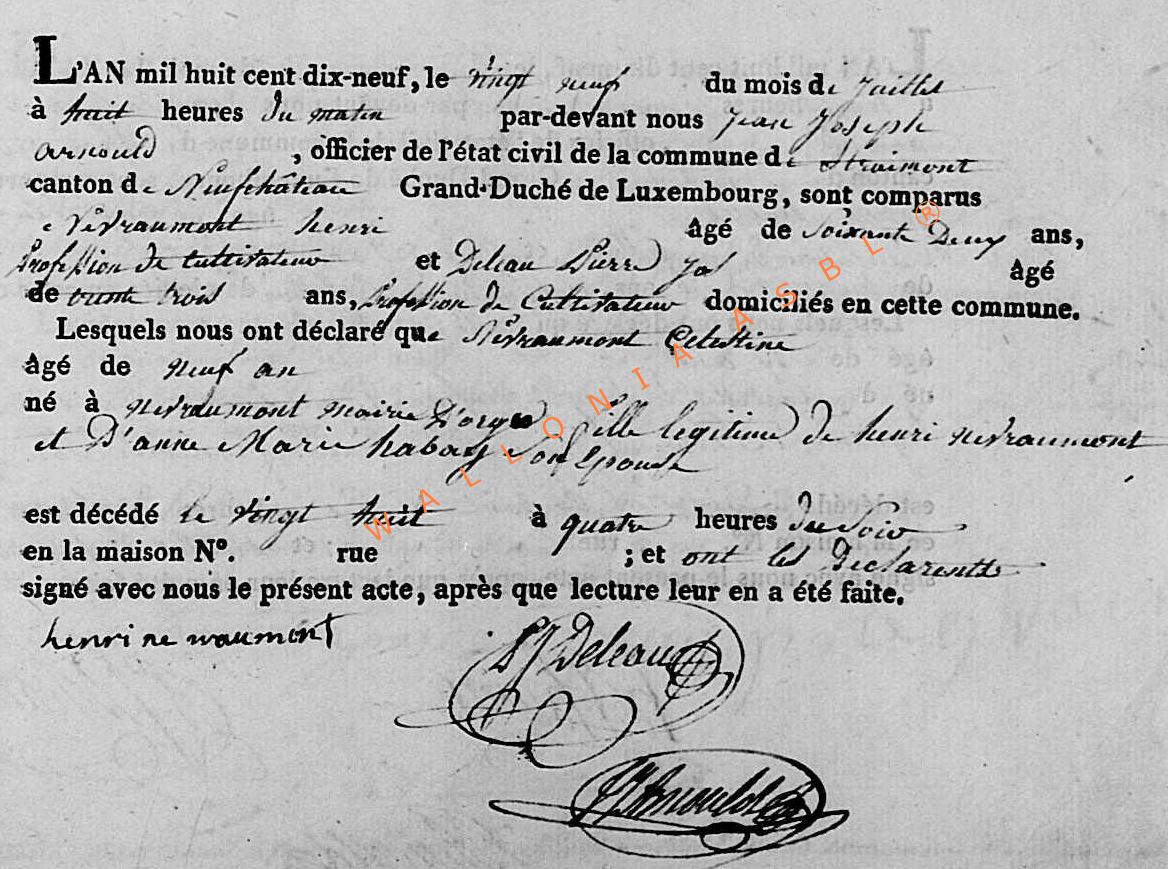 L'AN mil huit cent dix-neuf, le vingt neuf du mois de Juillet
à huit heures du matin par-devant nous Jean Joseph
arnould, officier de l'état civil de la commune de Straimont
canton de Neufchâteau Grand-Duché de Luxembourg, sont comparus
Nevraumont henri âgé de soixante Deux ans,
Profession de Cultivateur et Deleau Pierre Jos âgé
de trente trois ans, Profession de Cultivateur domiciliés en cette commune.
Lesquels nous ont déclaré que Nevraumont Celestine
âgé de neuf an
né à nevraumont mairie D'orgeo fille legitime de henri nevraumont
et D'anne Marie habay son Epouse
est décédé le vingt huit à quatre heures du Soir
en la maison N°. rue ; et ont les Declarents
signé avec nous le présent acte, après que lecture leur en a été faite.
henri ne vraumont
PJ Deleau
JJ Arnould
WALLONIA ASBL ®